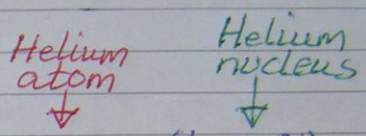 Helium
atom
Helium
nucleus